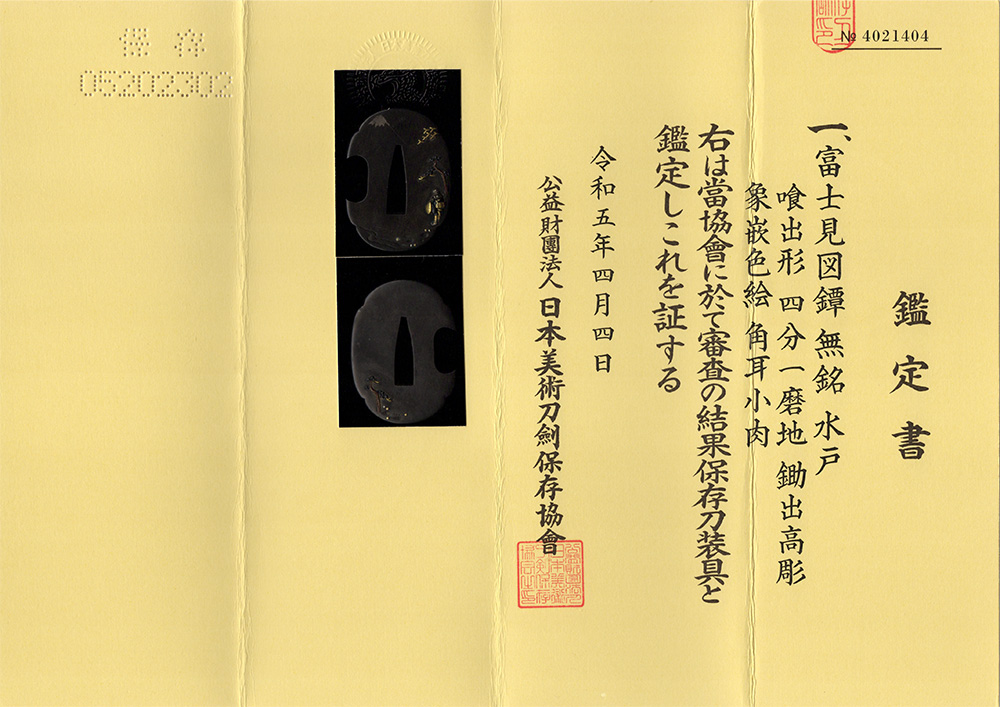 № 4021404
鑑定書
一、富士見図鐔 無銘 水戸
喰出形 四分一磨地 鋤出高彫
象嵌色絵 角耳小肉
右は當協會に於て審査の結果保存刀装具と
鑑定しこれを証する
令和五年四月四日
公益財團法人 日本美術刀劍保存協會
保存
05202302